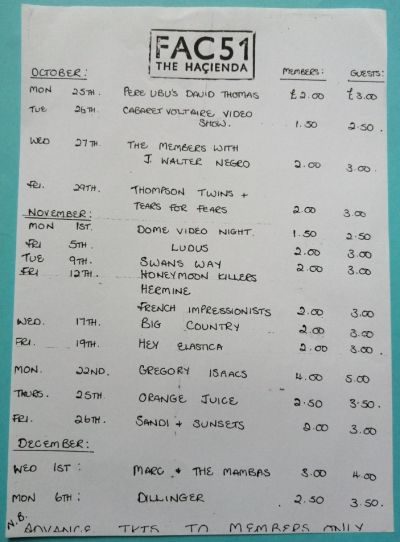 FAC51
THE HAÇIENDA
OCTOBER: MEMBERS: GUESTS:
MON 25TH. PERE UBU'S DAVID THOMAS £2.00 £3.00
TUE 26TH. CABARET VOLTAIRE VIDEO
SHOW. 1.50 2.50.
WED 27TH. THE MEMBERS WITH
J. WALTER NEGRO 2.00 3.00.
FRI. 29TH. THOMPSON TWINS +
TEARS FOR FEARS 2.00 3.00
NOVEMBER:
MON 1ST. DOME VIDEO NIGHT. 1.50 2.50
FRI 5TH. LUDUS 2.00 3.00
TUE 9TH. SWANS WAY 2.00 3.00
FRI 12TH. HONEYMOON KILLERS
HERMINE
FRENCH IMPRESSIONISTS 2.00 3.00
WED. 17TH. BIG COUNTRY 2.00 3.00
FRI. 19TH. HEY ELASTICA 2.00 3.00.
MON. 22ND. GREGORY ISAACS 4.00 5.00
THURS. 25TH. ORANGE JUICE 2.50 3.50.
FRI. 26TH. SANDI + SUNSETS 2.00 3.00
DECEMBER:
WED 1ST: MARC + THE MAMBAS 3.00 4.00
MON 6TH: DILLINGER 2.50 3.50.
N.B. ADVANCE TKTS TO MEMBERS ONLY